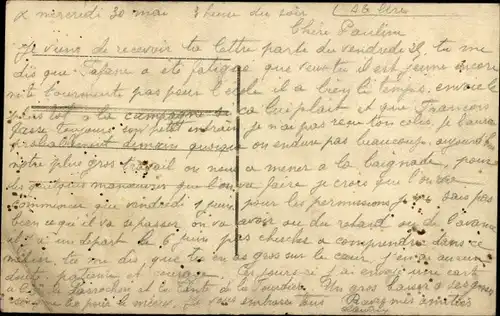 mercredi 30 mai 3 heure du soir
Chère Pauline
Je viens de recevoir ta lettre parte du vendredi 25, tu me
dis que a été fatigué que veux tu il est jeune encore
ne te tourmente pas pour l'école il a bien le temps. envoie le
plus tot a la campagne si ca lui plait et que François
fasse toujours son petit je n'ai pas reçu ton colis, je l'aurai
probablement demain quoique on endure pas beaucoup, aujourd'hui
notre plus gros travail on nous a mener a la baignade, pour
les quelques manœuvres que l'on va faire je crois que l'on va
commencer que vendredi 1 juin pour les permissions je sais pas
bien ce qu'il va se passer on va avoir ou du retard ou de l'avance
il y a un départ le 6 juin pas cherches a comprendre dans ce
métier, tu me dis, que tu en as gros sur le cœur j'en ai aucun
doute patience et courage ces jours-ci j'ai envoyé une carte
a et la Tante de
Un gros baiser a ses gosses
pour la mère. Je vous embrasse tous
mes amitiés